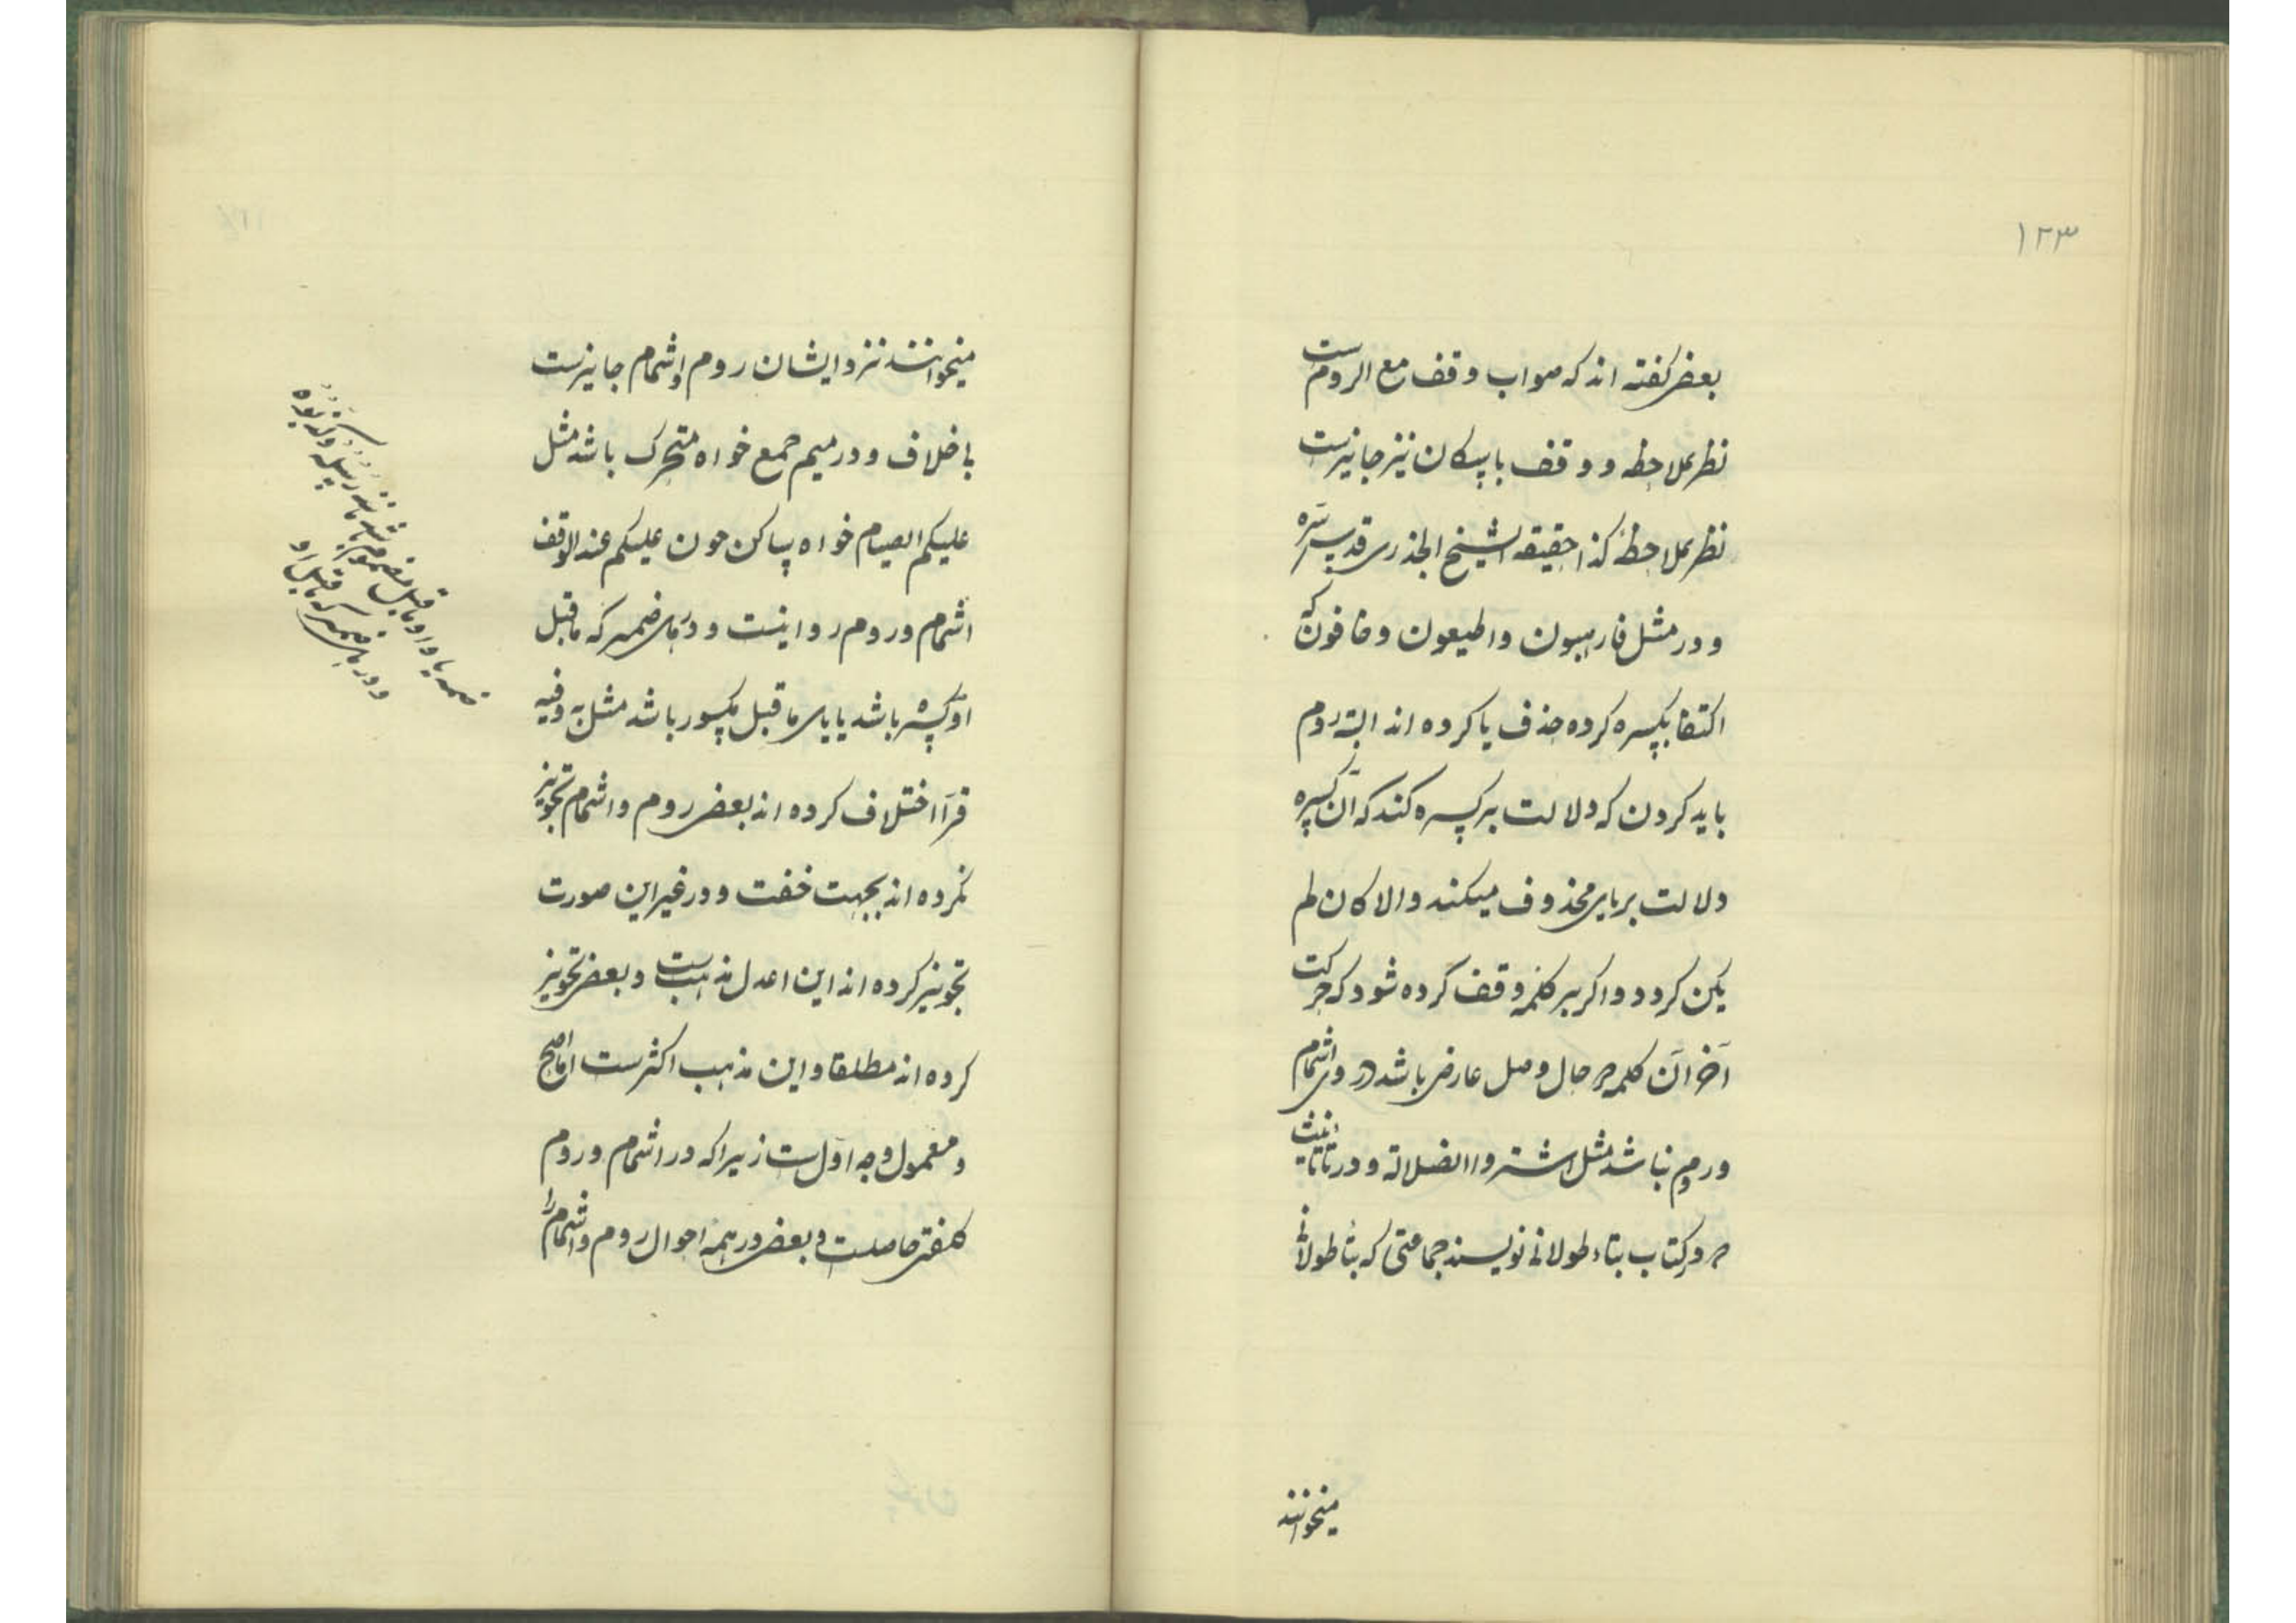 ۱۲۳
بعضی کفته اند که صواب وقف مع الروم است
نظر بملاحظه و وقف باسکان نیز جایزست
نظر بملاحظه کذا حقیقه الشیخ الجذری قدس سره
و در مثل فارهبون واطیعون وخافون که
اکتفا بکسره کرده حذف یا کرده اند البته روم
باید کردن که دلالت بر کسره کند که آن کسره
دلالت بریای محذوف میکند والا کان لم
یکن کردد و اکر بر کلمه وقف کرده شود که حرکت
آخر آن کلمه در حال وصل عارض باشد در وی اشمام
و روم نباشد مثل اشتروا الضلالة و در تا تانیث
که در کتاب بتاء طولانی نویسند جماعتی که بتا طولانی
میخوانند
میخوانند نزد ایشان روم و اشمام جایزست
باخلاف و در میم جمع خواه متحرک باشد مثل
علیکم الصیام خواه ساکن چون علیکم عند الوقف
اشمام و روم روا نیست و در های ضمیر که ماقبل
او کسره باشد یا یای ماقبل مکسور باشد مثل به وفیه
قرآ اختلاف کرده اند بعضی روم و اشمام تجویز
نکرده اند بجهت خفت و در غیر این صورت
تجویز کرده اند این اعدل مذهب است و بعضی تجویز
کرده اند مطلقا و این مذهب اکثرست اما اصح
و معمول وجه اول ست زیرا که در اشمام و روم
کلفتی حاصلست و بعضی در همه احوال روم و اشمام را
و در های ضمیر که ماقبل او
ضمه یا واو ماقبل مضموم باشد مانند